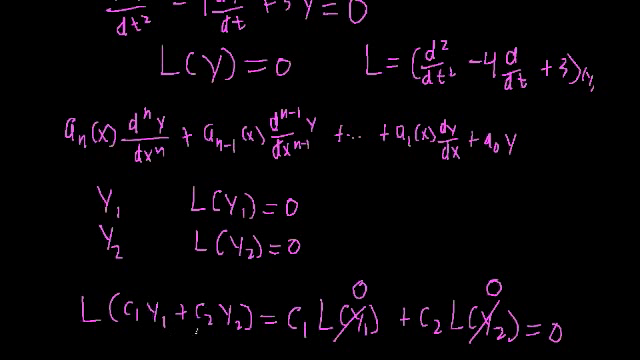 dt² - 4 dy/dt + 3y = 0
L(y) = 0 L = (d²/dt² - 4 d/dt + 3)(y)
aₙ(x) dⁿy/dxⁿ + aₙ₋₁(x) dⁿ⁻¹y/dxⁿ⁻¹ + ... + a₁(x) dy/dx + a₀ y
y₁ L(y₁) = 0
y₂ L(y₂) = 0
0 0
L(c₁y₁ + c₂y₂) = c₁ L(y₁) + c₂ L(y₂) = 0